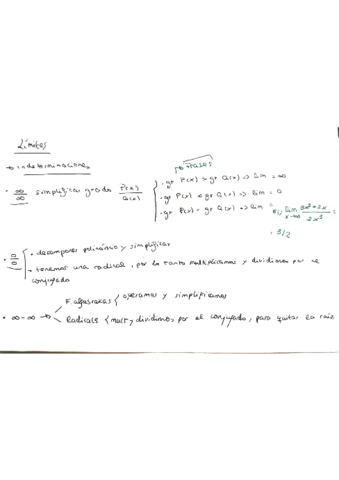 Límites
→ indeterminaciones
• ∞/∞ simplificar grados P(x)/Q(x) { • gr P(x) > gr Q(x) => lim = ∞
• gr P(x) < gr Q(x) => lim = 0
• gr P(x) = gr Q(x) => lim = Ej: lim x→∞ 3x³+2x / 2x³ =
= 3/2
• 0/0 { • decomponer polinómio y simplificar
• tenemos una radical, por lo tanto multiplicamos y dividimos por el
conjugado
• ∞-∞ → F. algebraicas { operamos y simplificamos
Radicals { mult y dividimos por el conjugado, para quitar la raiz